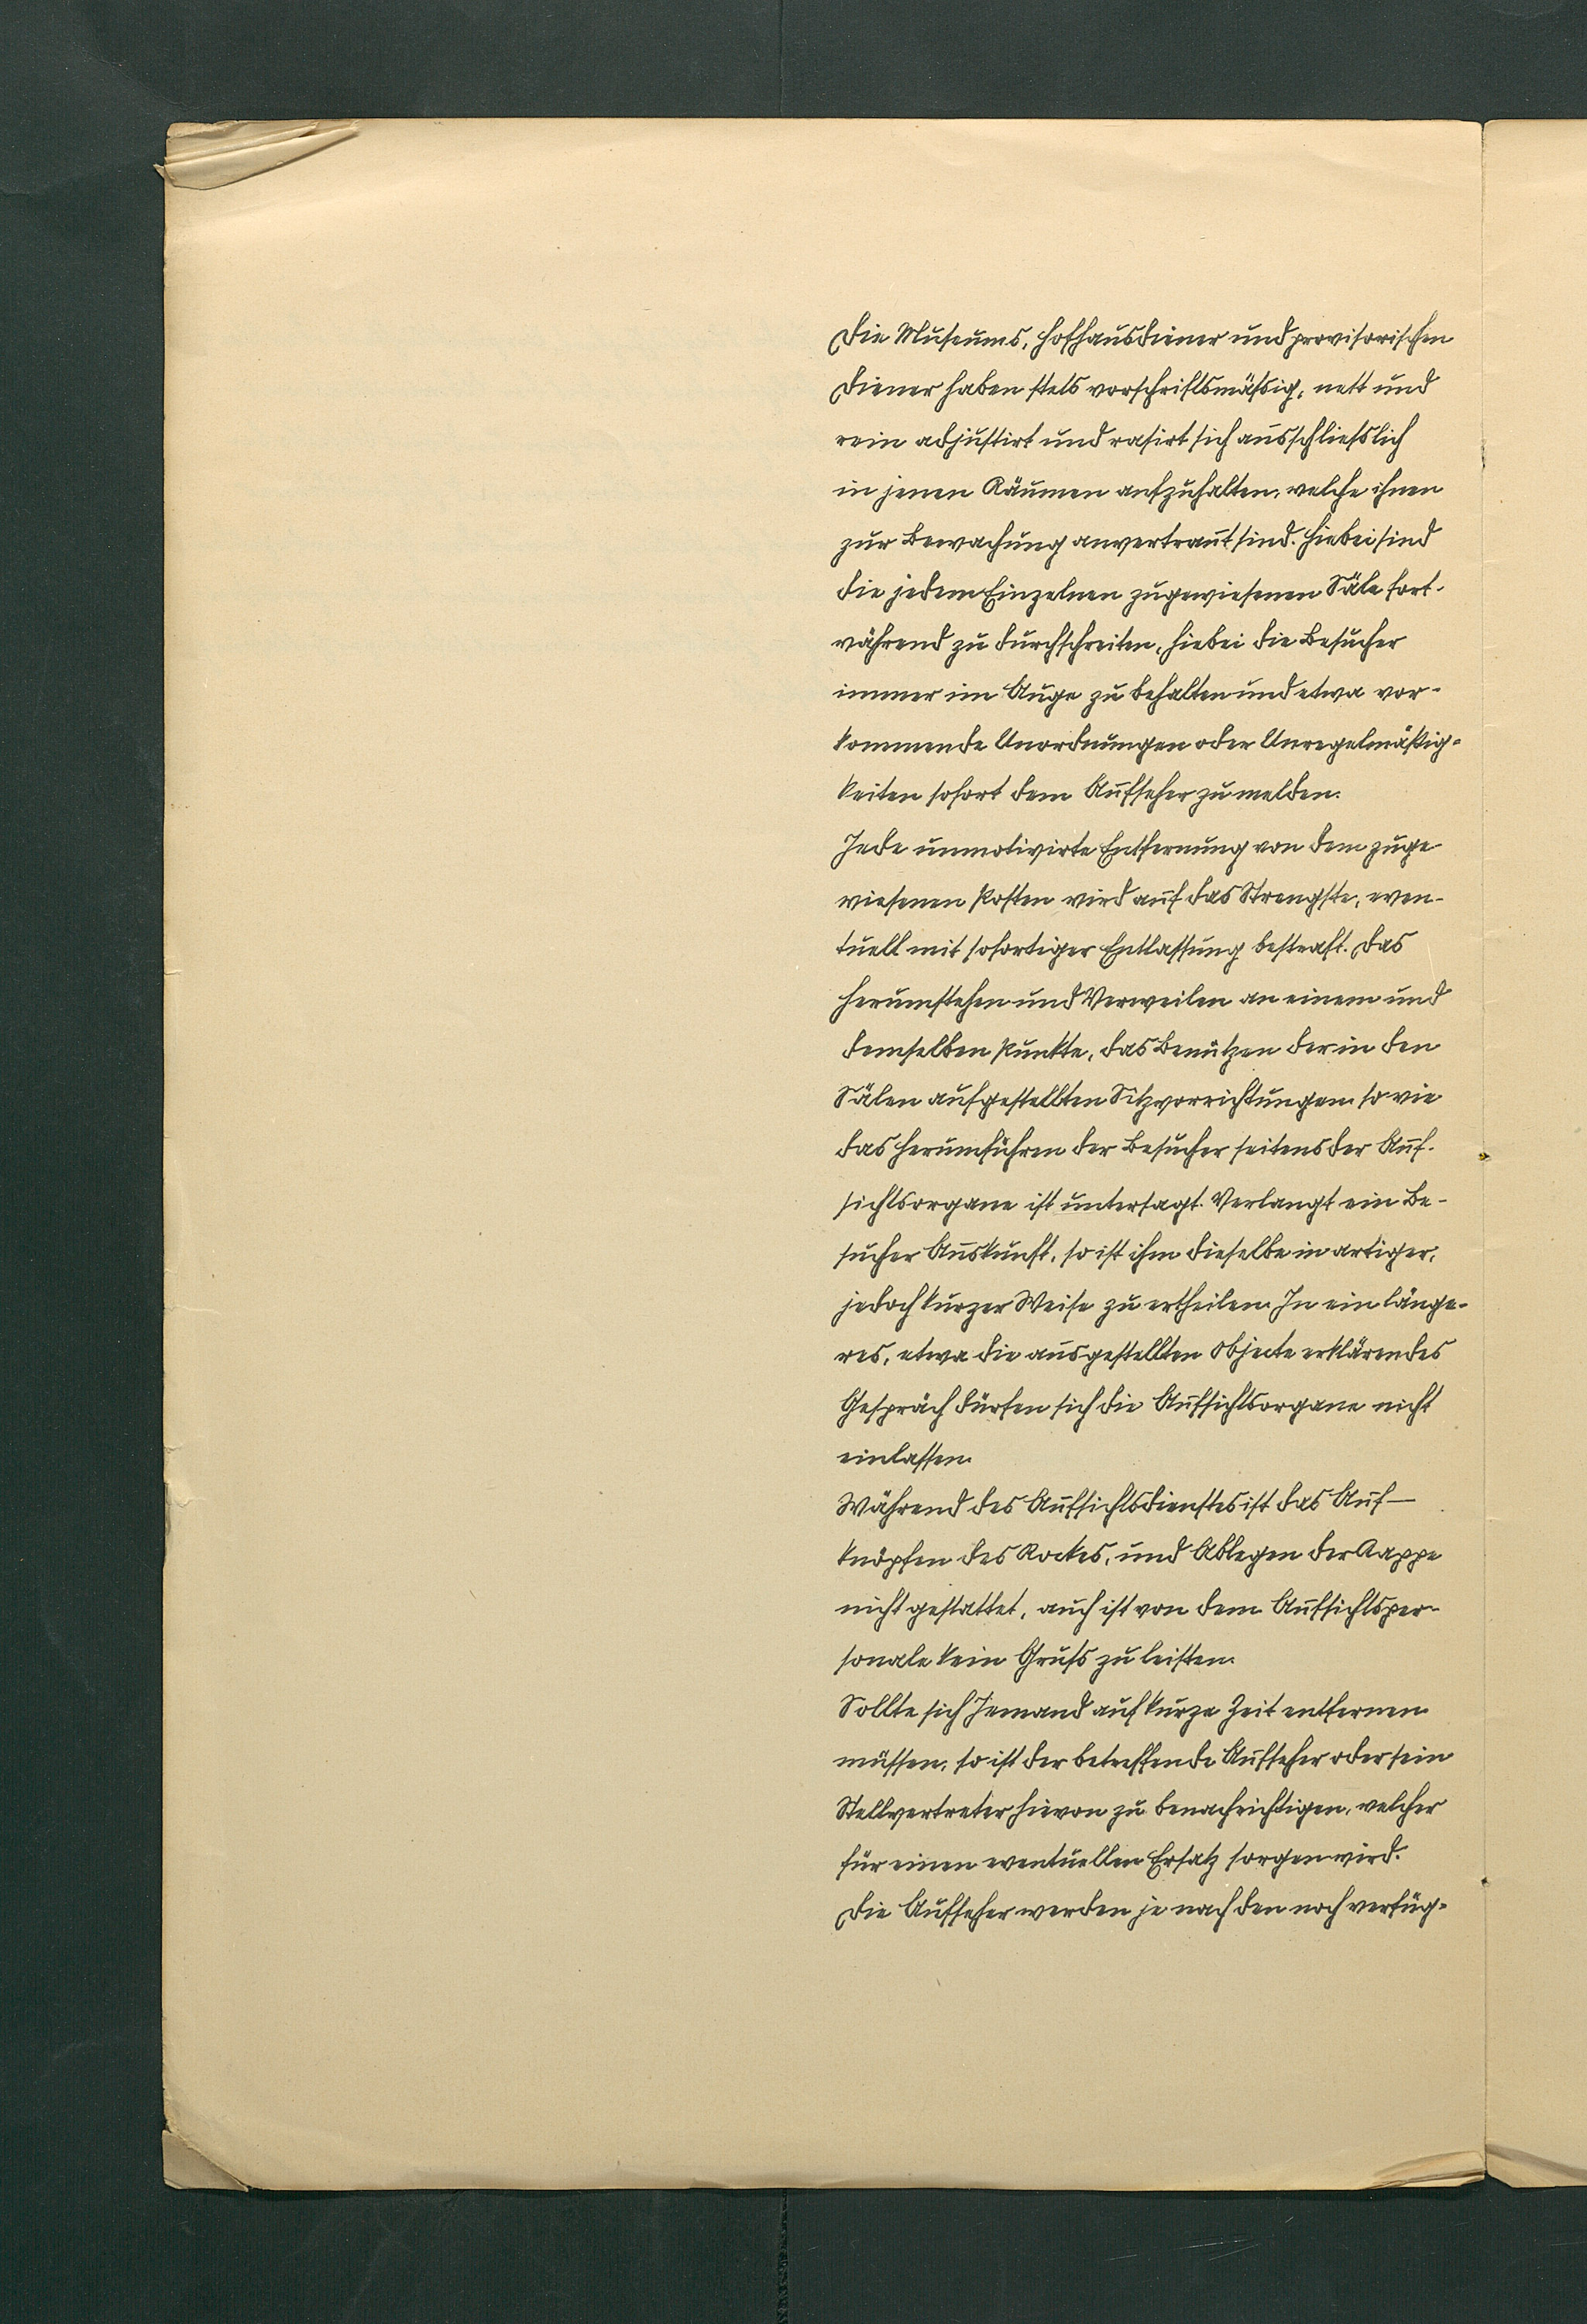 Die Museums, Hofhausdiener und provisorischen
Diener haben stets vorschriftsmäßig, nett und
rein adjustirt und rasirt sich ausschließlich
in jenen Räumen aufzuhalten, welche ihnen
zur Bewachung anvertraut sind. Hiebei sind
die jedem Einzelnen zugewiesenen Säle fort-
während zu durchschreiten, hiebei die Besucher
immer im Auge zu behalten und etwa vor-
kommende Unordnungen oder Unregelmäßig-
keiten sofort dem Aufseher zu melden.
Jede unmotivirte Entfernung von dem zuge-
wiesenen Posten wird auf das Strengste, even-
tuell mit sofortiger Entlassung bestraft. Das
Herumstehen und Verweilen an einem und
demselben Punkte, das Benützen der in den
Sälen aufgestellten Sitzvorrichtungen so wie
das Herumführen der Besucher seitens der Auf-
sichtsorgane ist untersagt. Verlangt ein Be-
sucher Auskunft, so ist ihm dieselbe in artiger,
jedoch kurzer Weise zu ertheilen. In ein länge-
res, etwa die ausgestellten Objecte erklärendes
Gespräch dürfen sich die Aufsichtsorgane nicht
einlassen.
Während des Aufsichtsdienstes ist das Auf-
knöpfen des Rockes, und Ablegen der Kappe
nicht gestattet, auch ist von dem Aufsichtsper-
sonale kein Gruß zu leisten.
Sollte sich Jemand auf kurze Zeit entfernen
müssen, so ist der betreffende Aufseher oder sein
Stellvertreter hievon zu benachrichtigen, welcher
für einen eventuellen Ersatz sorgen wird.
Die Aufseher werden je nach den noch verfüg-